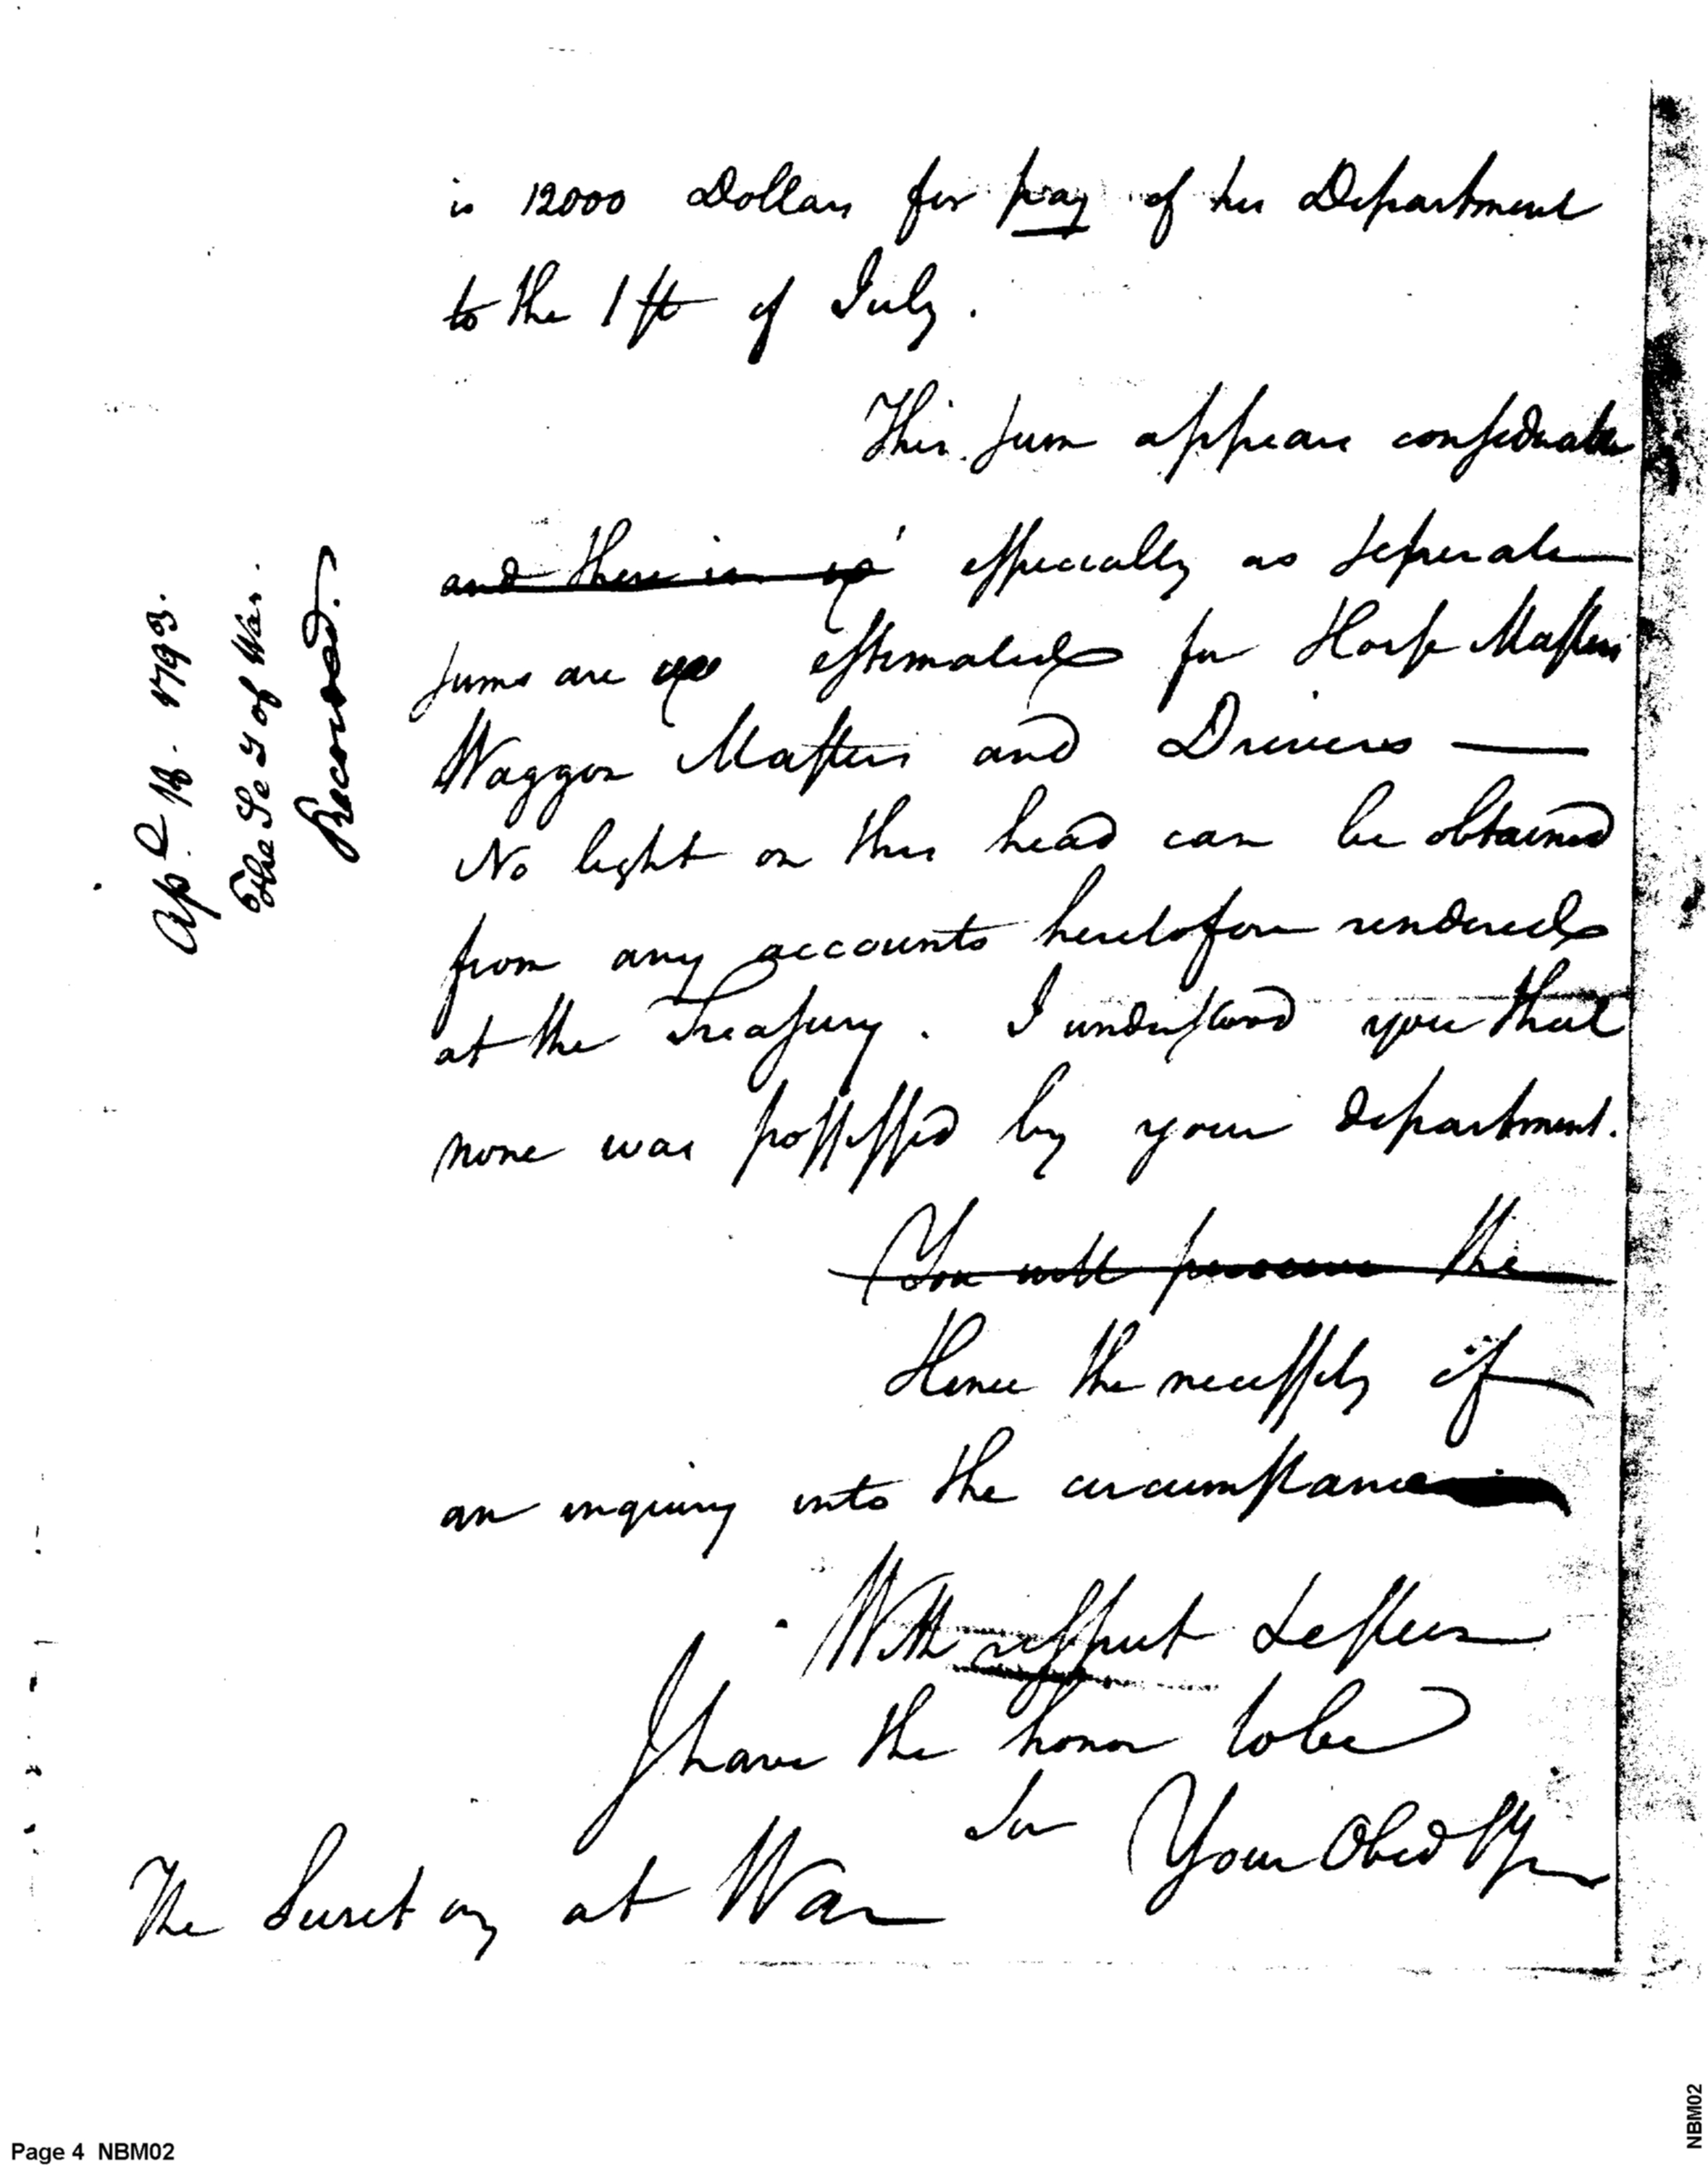 is 12000 Dollars for pay of his Department
to the 1st of July.
This sum appears considerable
and there is especially as seperate
sums are estimated for Horse Masters
Waggon Masters and Drivers —
No light on this head can be obtained
from any accounts heretofore rendered
at the Treasury. I understood you that
none was possessed by your department.
You will perceive the
Hence the necessity of
an inquiry into the circumstance
With respect
I have the honor to be
Sir Your Obed
The Secretary at War
Ap 18. 1793.
The Secy of War.
Recorded.
Page 4 NBM02
NBM02